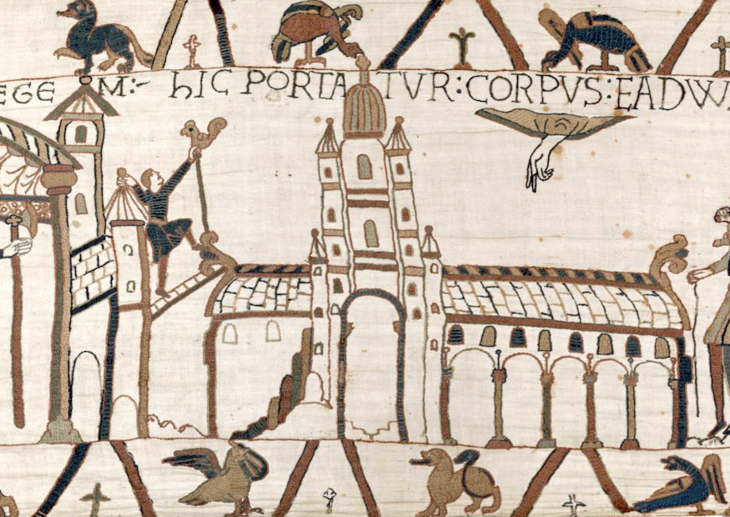 EGE M:~ hIC PORTATVR:CORPVS:EADW